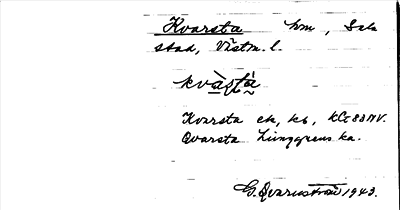 Kvarsta hm, Sala
stad, Västm. l.
kvàsṭa
Kvarsta ek, kb, KlC 83 NV.
Qvarsta Ljunggrens ka.
G. Qvarnström 1943.